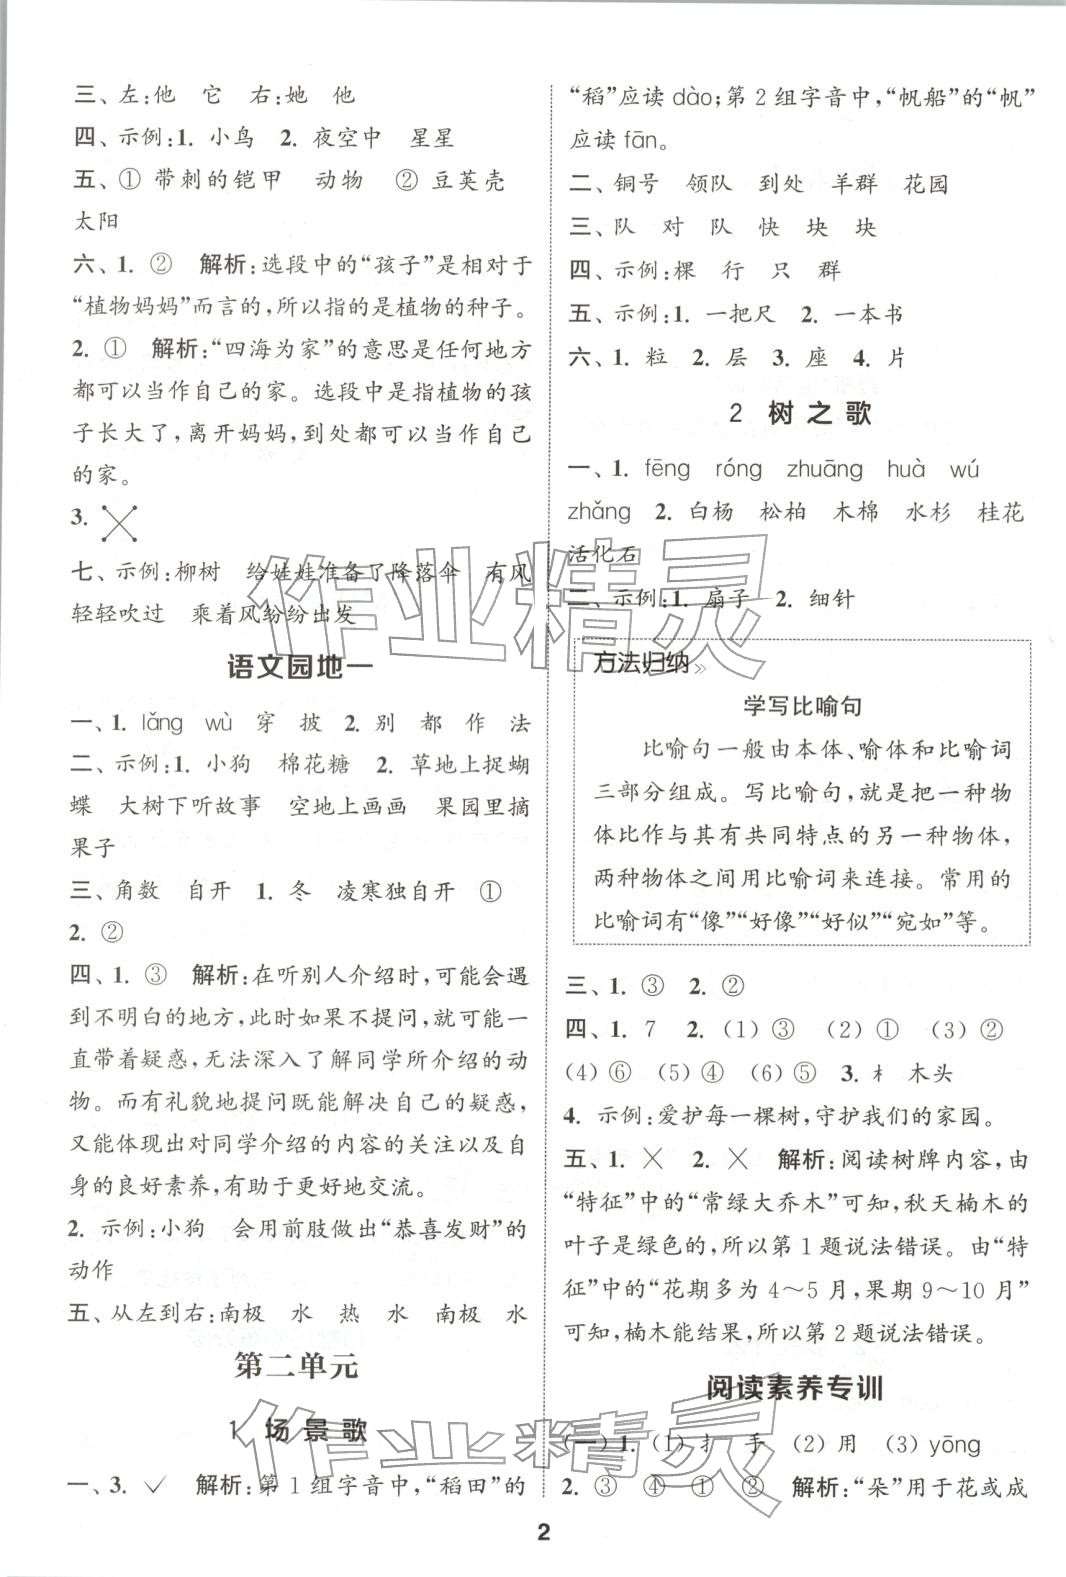 三、左:他　它　右:她　他
四、示例:1. 小鸟　2. 夜空中　星星
五、① 带刺的铠甲　动物　② 豆荚壳
太阳
六、1. ②　解析:选段中的“孩子”是相对于
“植物妈妈”而言的,所以指的是植物的种子。
2. ①　解析:“四海为家”的意思是任何地方
都可以当作自己的家。选段中是指植物的孩
子长大了,离开妈妈,到处都可以当作自己
的家。
3.
七、示例:柳树　给娃娃准备了降落伞　有风
轻轻吹过　乘着风纷纷出发
语文园地一
一、1. lǎng　wù　穿　披　2. 别　都　作　法
二、示例:1. 小狗　棉花糖　2. 草地上捉蝴
蝶　大树下听故事　空地上画画　果园里摘
果子
三、角数　自开　1. 冬　凌寒独自开　①
2. ②
四、1. ③　解析:在听别人介绍时,可能会遇
到不明白的地方,此时如果不提问,就可能一
直带着疑惑,无法深入了解同学所介绍的动
物。而有礼貌地提问既能解决自己的疑惑,
又能体现出对同学介绍的内容的关注以及自
身的良好素养,有助于更好地交流。
2. 示例:小狗　会用前肢做出“恭喜发财”的
动作
五、从左到右:南极　水　热　水　南极　水
第二单元
1　场景歌
一、3. ✓　解析:第 1 组字音中,“稻田”的
“稻”应读 dào;第 2 组字音中,“帆船”的“帆”
应读 fān。
二、铜号　领队　到处　羊群　花园
三、队　对　队　快　块　块
四、示例:棵　行　只　群
五、示例:1. 一把尺　2. 一本书
六、1. 粒　2. 层　3. 座　4. 片
2　树之歌
一、1. fēng　róng　zhuāng　huà　wú
zhǎng　2. 白杨　松柏　木棉　水杉　桂花
活化石
二、示例:1. 扇子　2. 细针
方法归纳
学写比喻句
比喻句一般由本体、喻体和比喻词
三部分组成。写比喻句,就是把一种物
体比作与其有共同特点的另一种物体,
两种物体之间用比喻词来连接。常用的
比喻词有“像”“好像”“好似”“宛如”等。
三、1. ③　2. ②
四、1. 7　2. (1) ③　(2) ①　(3) ②
(4) ⑥　(5) ④　(6) ⑤　3. 木　木头
4. 示例:爱护每一棵树,守护我们的家园。
五、1. ×　2. ×　解析:阅读树牌内容,由
“特征”中的“常绿大乔木”可知,秋天楠木的
叶子是绿色的,所以第 1 题说法错误。由“特
征”中的“花期多为 4～5 月,果期 9～10 月”
可知,楠木能结果,所以第 2 题说法错误。
阅读素养专训
(一) 1. (1) 扌　手　(2) 用　(3) yōng
2. ③　④　①　②　解析:“朵”用于花或成
2
作业精灵
作业精灵